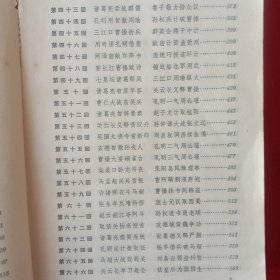 第四十三回 诸葛亮舌战群儒 鲁子敬力排众议
第四十四回 孔明用智激周瑜 孙权决计破曹操
第四十五回 三江口曹操折兵 群英会蒋干中计
第四十六回 用奇谋孔明借箭 献密计黄盖受刑
第四十七回 阚泽密献诈降书 庞统巧授连环计
第四十八回 宴长江曹操赋诗 锁战船北军用武
第四十九回 七星坛诸葛祭风 三江口周瑜纵火
第五十回 诸葛亮智算华容 关云长义释曹操
第五十一回 曹仁大战东吴兵 孔明一气周公瑾
第五十二回 诸葛亮智辞鲁肃 赵子龙计取桂阳
第五十三回 关云长义释黄汉升 孙仲谋大战张文远
第五十四回 吴国太佛寺看新郎 刘皇叔洞房续佳偶
第五十五回 玄德智激孙夫人 孔明二气周公瑾
第五十六回 曹操大宴铜雀台 孔明三气周公瑾
第五十七回 柴桑口卧龙吊丧 耒阳县凤雏理事
第五十八回 马孟起兴兵雪恨 曹阿瞒割须弃袍
第五十九回 许褚裸衣斗马超 曹操抹书间韩遂
第六十回 张永年反难杨修 庞士元议取西蜀
第六十一回 赵云截江夺阿斗 孙权遗书退老瞒
第六十二回 取涪关杨高授首 攻雒城黄魏争功
第六十三回 诸葛亮痛哭庞统 张翼德义释严颜
第六十四回 孔明定计捉张任 杨阜借兵破马超
第六十五回 马超大战葭萌关 刘备自领益州牧
第六十六回 关云长单刀赴会 伏皇后为国捐生